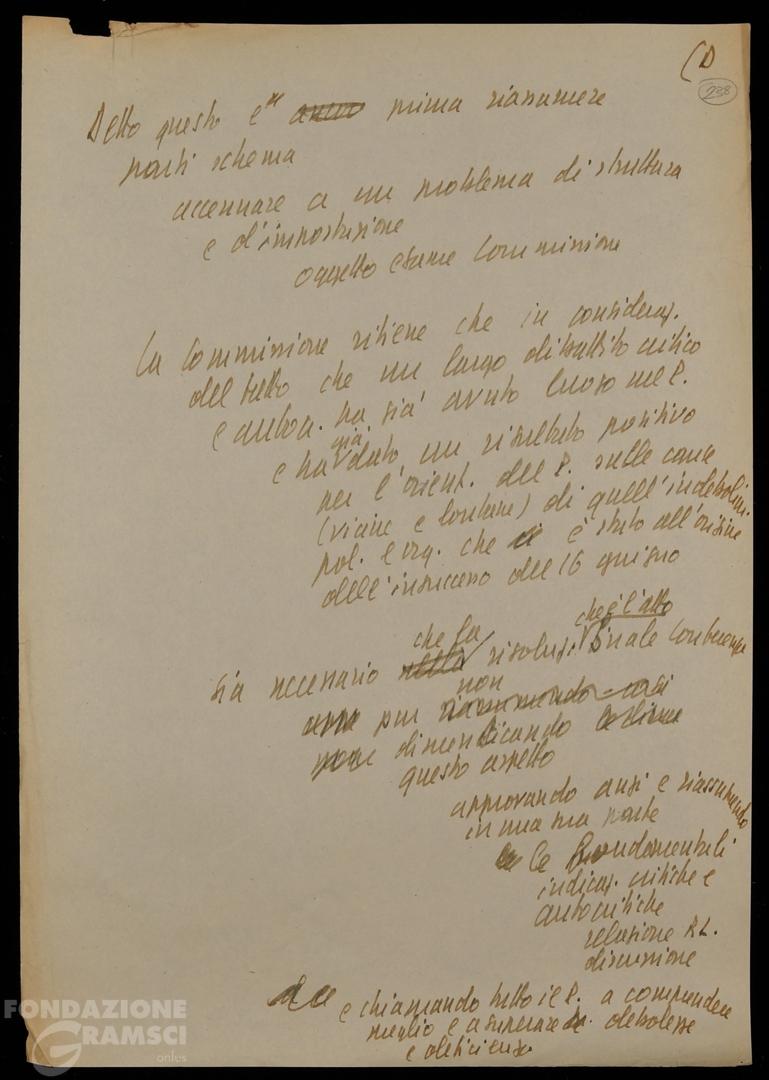 (D
738
Detto questo e prima riassumere
parti schema
accennare a un problema di struttura
e d'impostazione
oggetto esame Commissione
La Commissione ritiene che in consideraz.
del fatto che un largo dibattito critico
e autocr. ha già avuto luogo nel P.
e ha già dato un risultato positivo
per l'orient. del P. sulle cause
(vicine e lontane) di quell'indebolim.
pol. e org. che è stato all'origine
dell'insuccesso del 16 giugno
sia necessario che la risoluz. che è l'atto finale Conferenza
pur non
dimenticando
questo aspetto
approvando anzi e riassumendo
in una sua parte
le fondamentali
indicaz. critiche e
autocritiche
relazione RL.
discussione
e chiamando tutto il P. a comprendere
meglio e a superare debolezze
e deficienze
FONDAZIONE
GRAMSCI
onlus